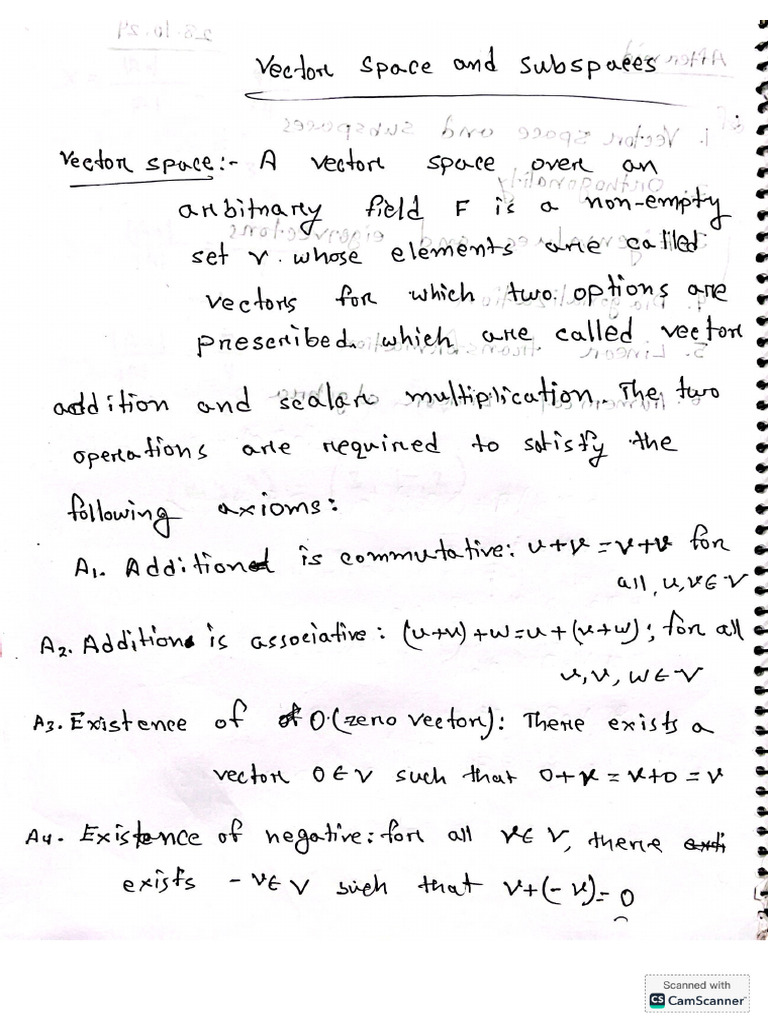 Vector space and subspaces
Vector space:- A vector space over an
arbitrary field F is a non-empty
set V. whose elements are called
vectors for which two options are
prescribed which are called vector
addition and scalar multiplication. The two
operations are required to satisfy the
following axioms:
A1. Addition is commutative: u+v=v+u for
all, u,v∈V
A2. Addition is associative: (u+v)+w=u+(v+w); for all
u,v,w∈V
A3. Existence of 0 (zero vector): There exists a
vector 0∈V such that 0+v=v+0=v
A4. Existence of negative: for all v∈V, there
exists -v∈V such that v+(-v)=0
Scanned with
CS CamScanner